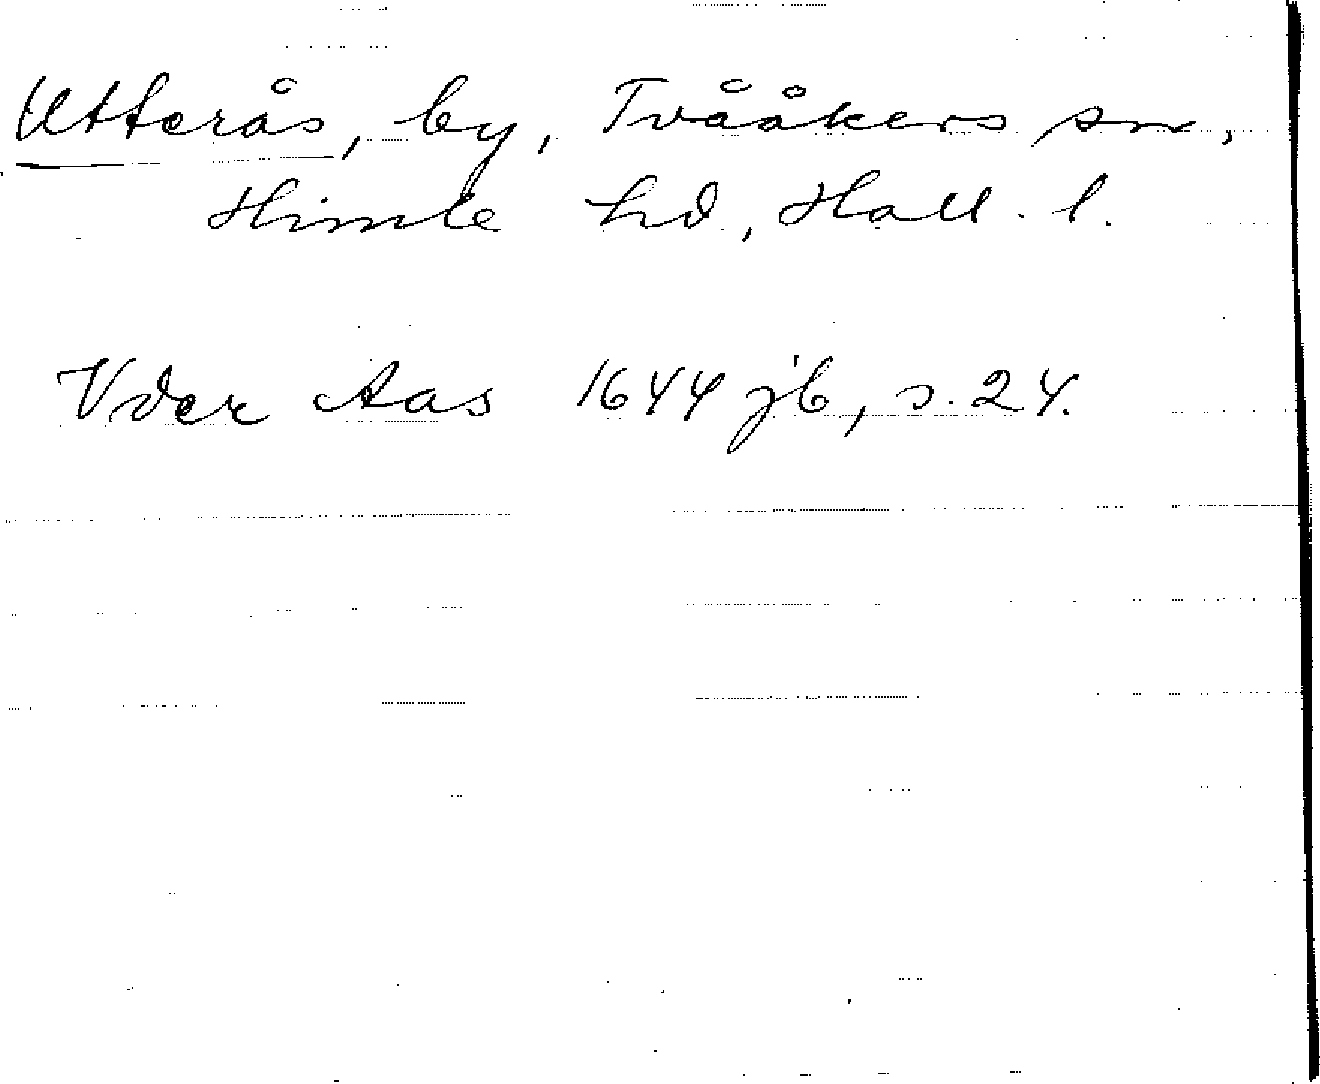 Utterås, by, Tvååkers sn,
Himle hd, Hall. l.
Vder Aas 1644 jb, s. 24.